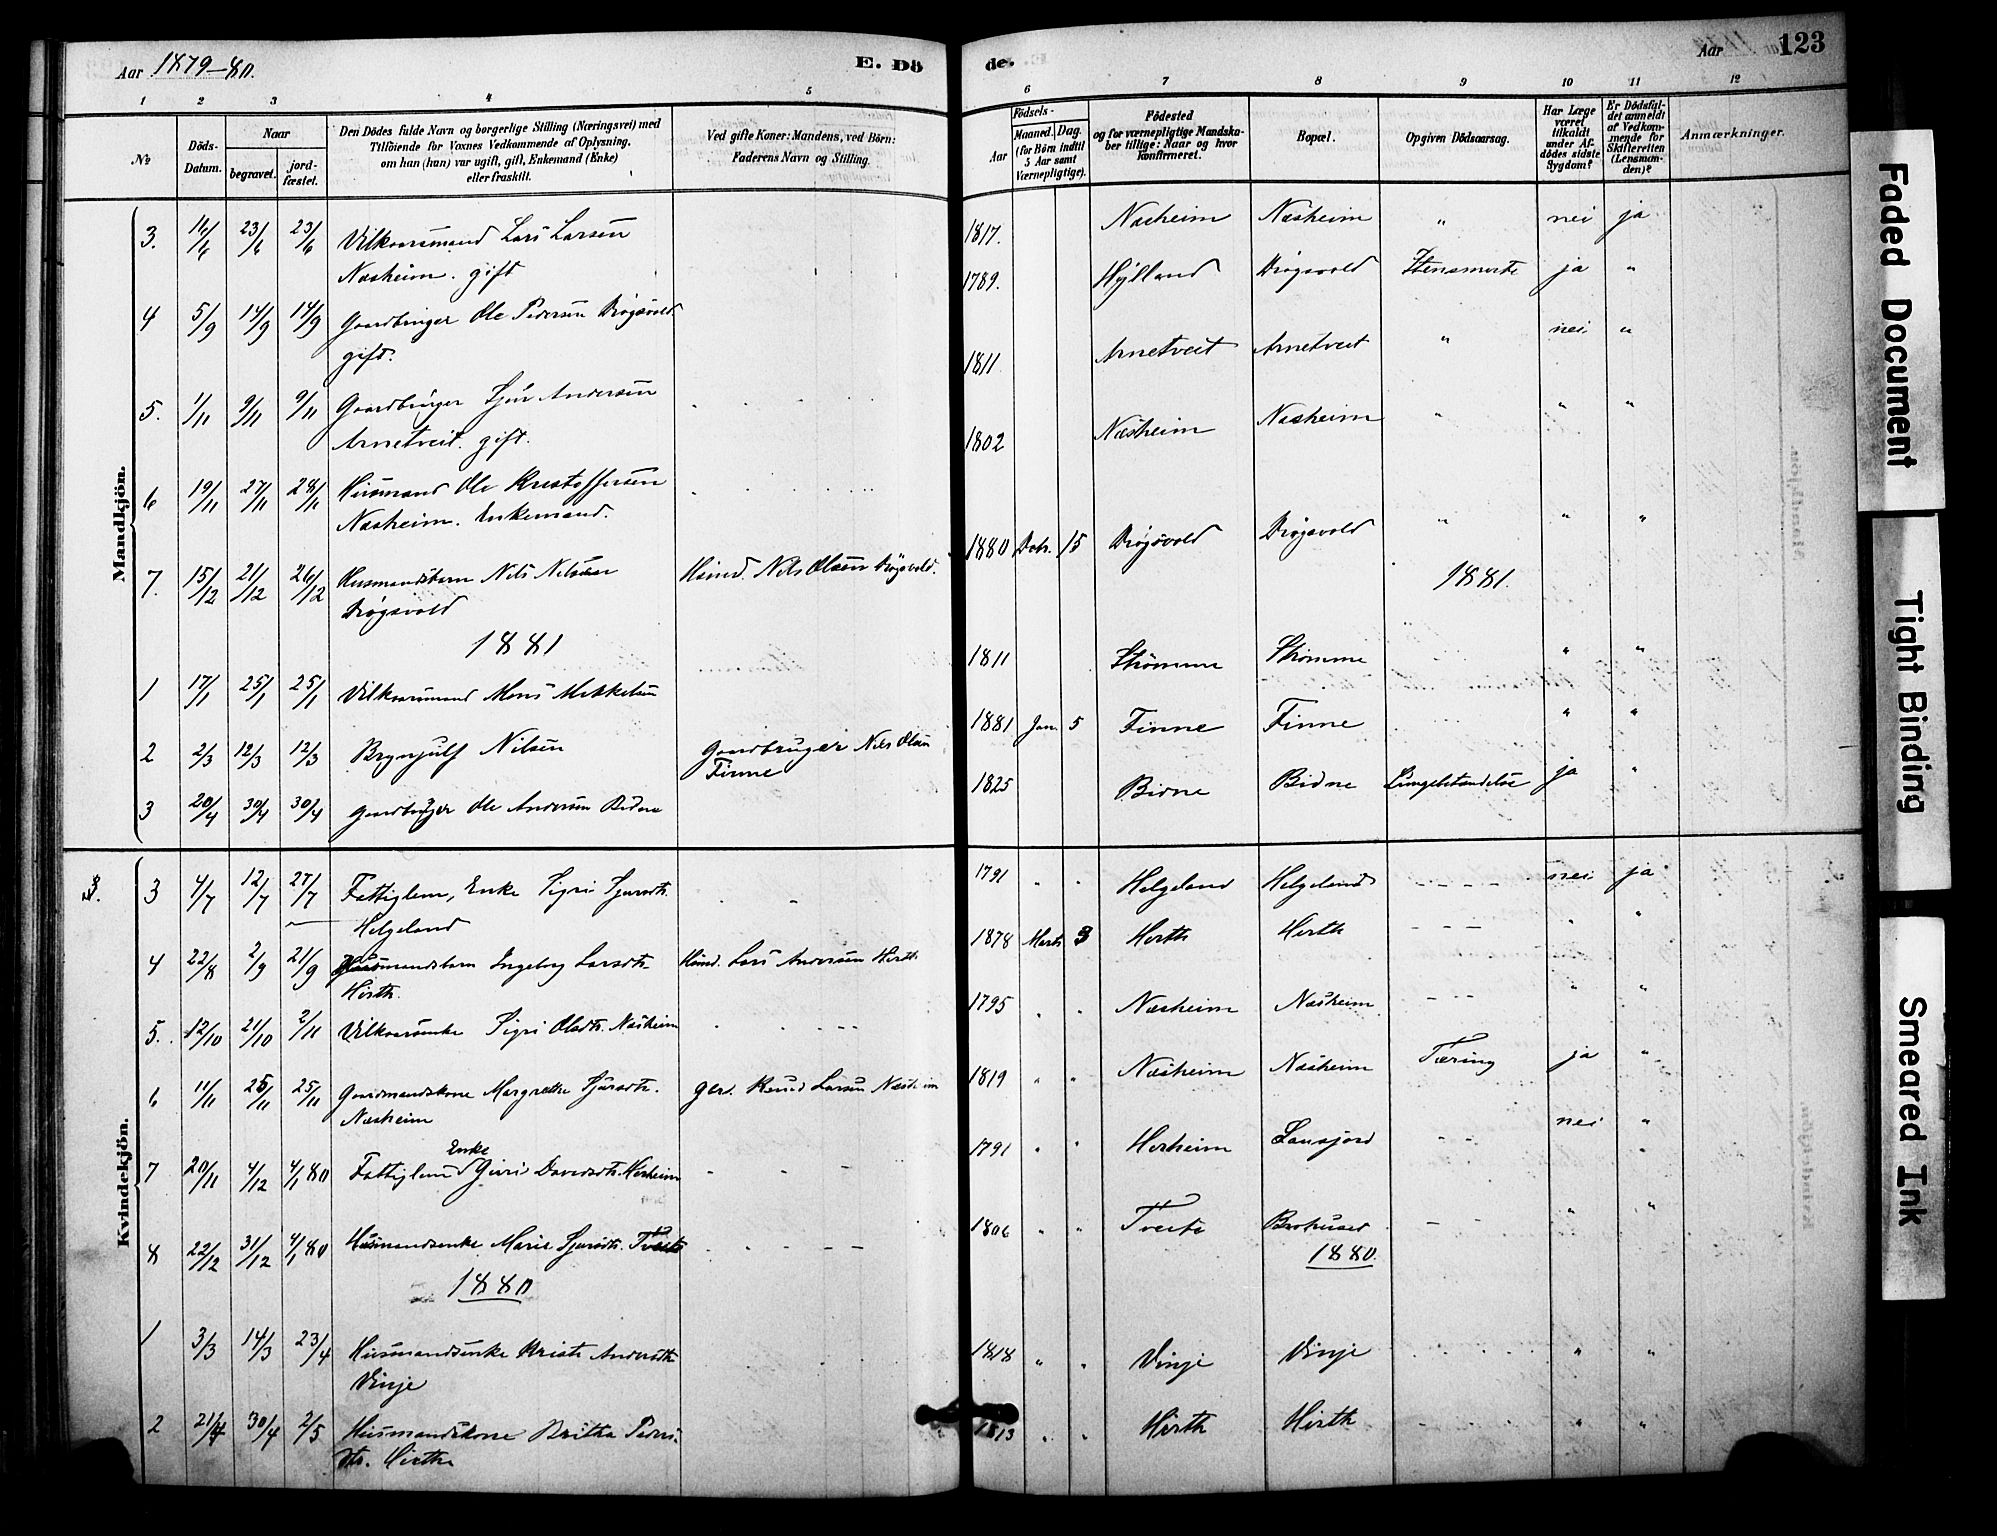 Aar 1879-80.
E. Dö
de.
Aar 123
1 2 3 4 5 6 7 8 9 10 11 12
No
Döds-Datum.
Naar
begravet.
jord-fæstet.
Den Dödes fulde Navn og borgerlige Stilling (Næringsvei) med
Tilföiende for Voxnes Vedkommende af Oplysning,
om han (hun) var ugift, gift, Enkemand (Enke)
eller fraskilt.
Ved gifte Koner: Mandens, ved Börn:
Faderens Navn og Stilling.
Födsels-
Aar
Maaned. Dag.
(for Börn indtil
5 Aar samt
Værnepligtige).
Födested
og for værnepligtige Mandska-
ber tillige: Naar og hvor
konfirmeret.
Bopæl.
Opgiven Dödsaarsag.
Har Læge
været
tilkaldt
under Af-
dödes sidste
Sygdom?
Er Dödsfal-
det anmeldt
af Vedkom-
mende for
Skifteretten
(Lensman-
den)?
Anmærkninger.
Mandkjön.
3. 16/6 23/6 23/6 Vilkaarsmand Lars Larsen 1817. Næsheim Næsheim " nei ja
Næsheim. gift
4 5/9 14/9 14/9 Gaardbruger Ole Pedersen Drøgsvold 1789. Hylland Drøgsvold ja "
gift.
5. 1/11 9/11 9/11 Gaardbruger Sjur Andersen 1811 Arnetveit Arnetveit " nei "
Arnetveit. gift.
6 19/11 27/11 28/11 Husmand Ole Kristoffersen 1802 Næsheim Næsheim " " "
Næsheim. Enkemand.
7. 15/12 21/12 26/12 Husmandsbarn Nils Nilsen Husmd. Nils Olsen Drøgsvold. 1880 Decbr. 15 Drøgsvold Drøgsvold " " "
Drøgsvold
1881 1881.
1 17/1 25/1 25/1 Vilkaarsmand Mons Mikkelsen 1811 Strømme Strømme " "
2 2/3 12/3 12/3 Brynjulf Nilsen Gaardbruger Nils Olsen 1881 Jan. 5 Finne Finne " "
Finne
3 20/4 30/4 30/4 Gaardbruger Ole Andersen Bidne 1825 Bidne Bidne Lungebetændelse ja "
Kvindekjön.
3 4/7 12/7 27/7 Fattiglem, Enke Sigri Sjursdtr. 1791 " " Helgeland Helgeland nei ja
Helgeland
4 22/8 2/9 21/9 Husmandsbarn Ingeborg Larsdtr. Husmd. Lars Andersen Hirth 1878 Marts 3 Hirth Hirth " "
Hirth.
5. 12/10 21/10 2/11 Vilkaarsenke Sigri Olsdtr. Næsheim 1795 " " Næsheim Næsheim " "
6 11/11 25/11 25/11 Gaardmandskone Margrethe Sjursdtr. Gbr. Knud Larsen Næsheim 1819 " " Næsheim Næsheim Tæring ja "
Næsheim
Enke
7 20/11 4/12 4/1 80 Fattiglem Guri Davidsdtr. Herheim 1791 " " Herheim nei "
8 22/12 31/12 4/1 80 Husmandsenke Marie Sjursdtr. Tveite 1806 " " Tveite " "
1880 1880.
1 3/3 14/3 23/4 Husmandsenke Kristi Andersdtr. 1818 " " Vinje Vinje " "
Vinje
2 21/4 30/4 2/5 Husmandskone Britha Peders- 1813 " " Hirth Hirth " "
dtr. Hirth
Faded Document
Tight Binding
Smeared Ink